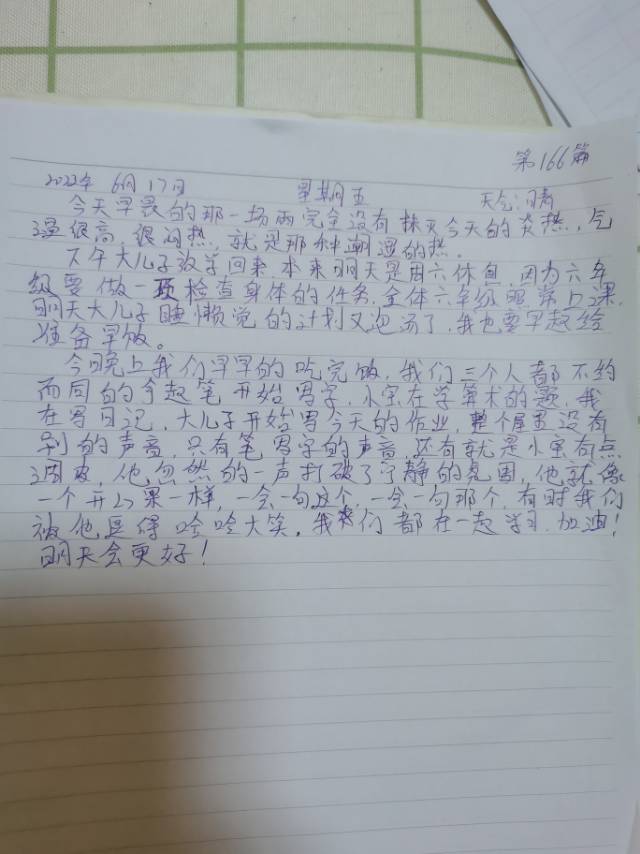 第166篇
2022年 6月17日 星期五 天气:晴
今天早晨的那一场雨完全没有抹灭今天的炎热,气
温很高,很闷热,就是那种潮湿的热。
下午大儿子放学回来,本来明天是周六休息,因为六年
级要做一项检查身体的任务,全体六年级照常上课,
明天大儿子睡懒觉的计划又泡汤了,我也要早起给
准备早饭。
今晚上我们早早的吃完饭,我们三个人都不约
而同的拿起笔开始写字,小宝在学算术的题,我
在写日记,大儿子开始写今天的作业,整个屋里没有
别的声音,只有笔写字的声音,还有就是小宝有点
调皮,他忽然的一声打破了宁静的氛围,他就像
一个开心果一样,一会一句这个,一会一句那个,有时我们
被他逗得哈哈大笑,我们都在一起学习,加油!
明天会更好!